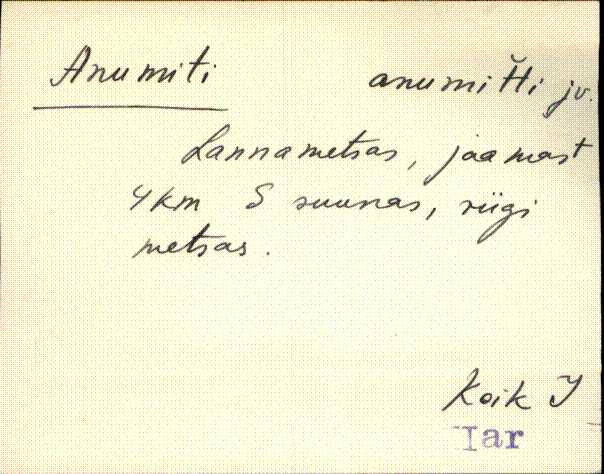 Anumiti anumiťťi jv.
Lannametsas, jaamast
4 km S suunas, riigi
metsas.
Koik I
Tar